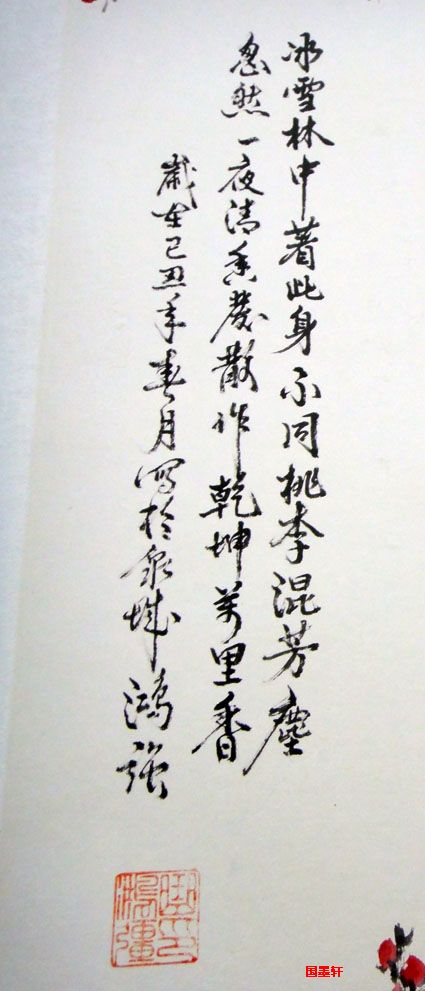 冰雪林中著此身不同桃李混芳塵
忽然一夜清香發散作乾坤萬里香
歲在己丑年春月寫於泉城
鴻强
国墨轩